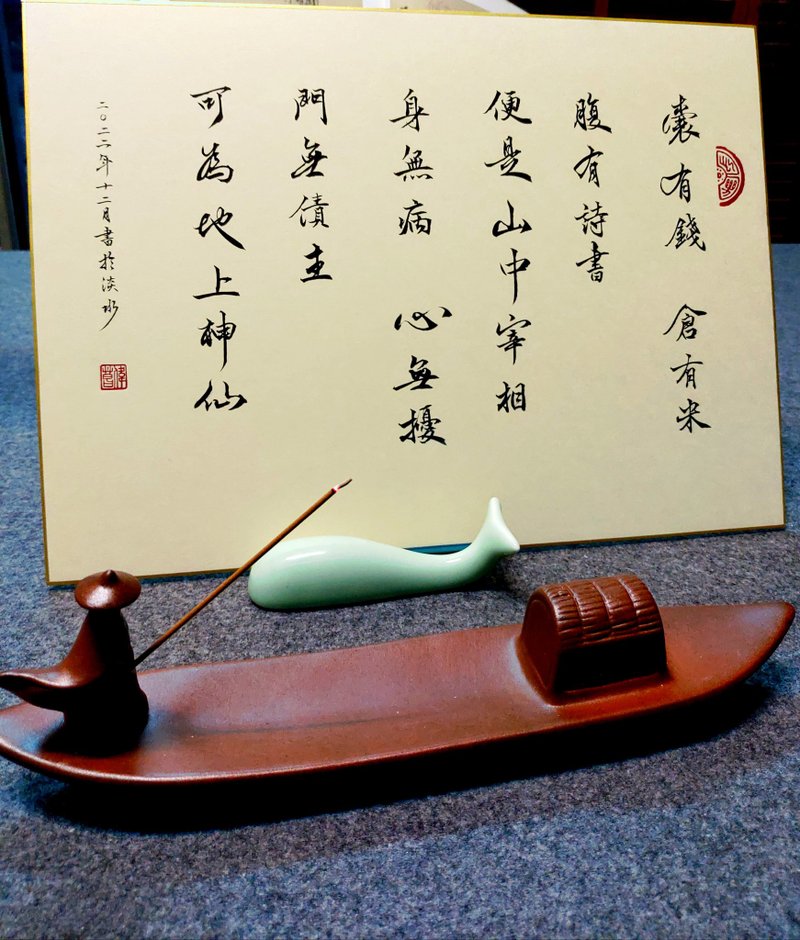 囊有錢　倉有米
腹有詩書
便是山中宰相
身無病　心無擾
門無債主
可為地上神仙
二〇二二年十二月書於淡水